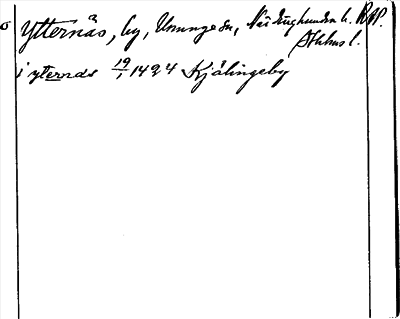 Ytternäs, by, Ununge sn, Närdinghundra h. RAP.
Sthlms l.
i yternäs 19/1 1494 Kjälingeby